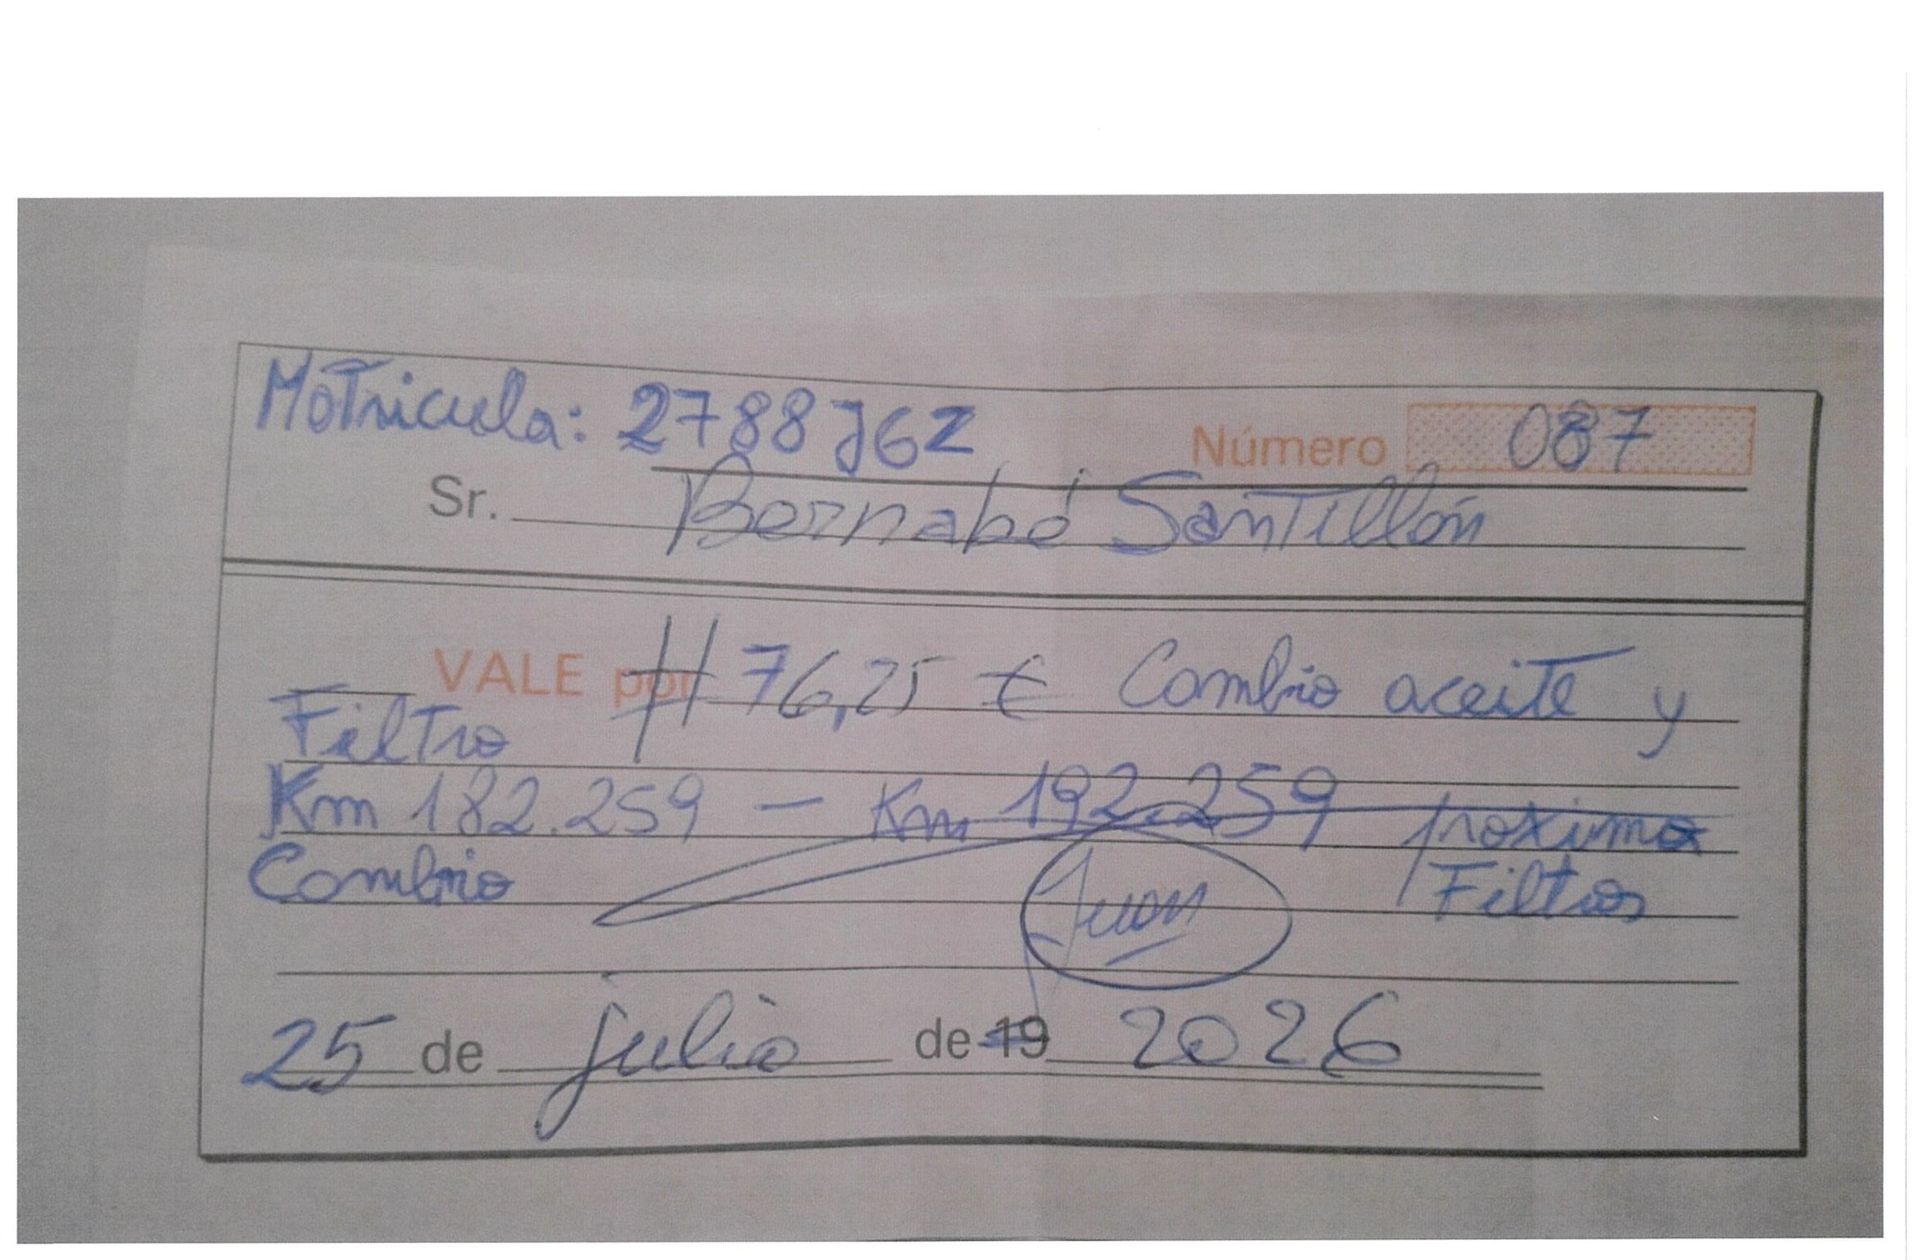 Matricula: 2788JGZ
Número 087
Sr. Bernabé Santillán
VALE por # 76,25 € Cambio aceite y
Filtro
Km 182.259 - Km 192.259 proximo
Cambio Filtros
Juan
25 de julio de 19 2026